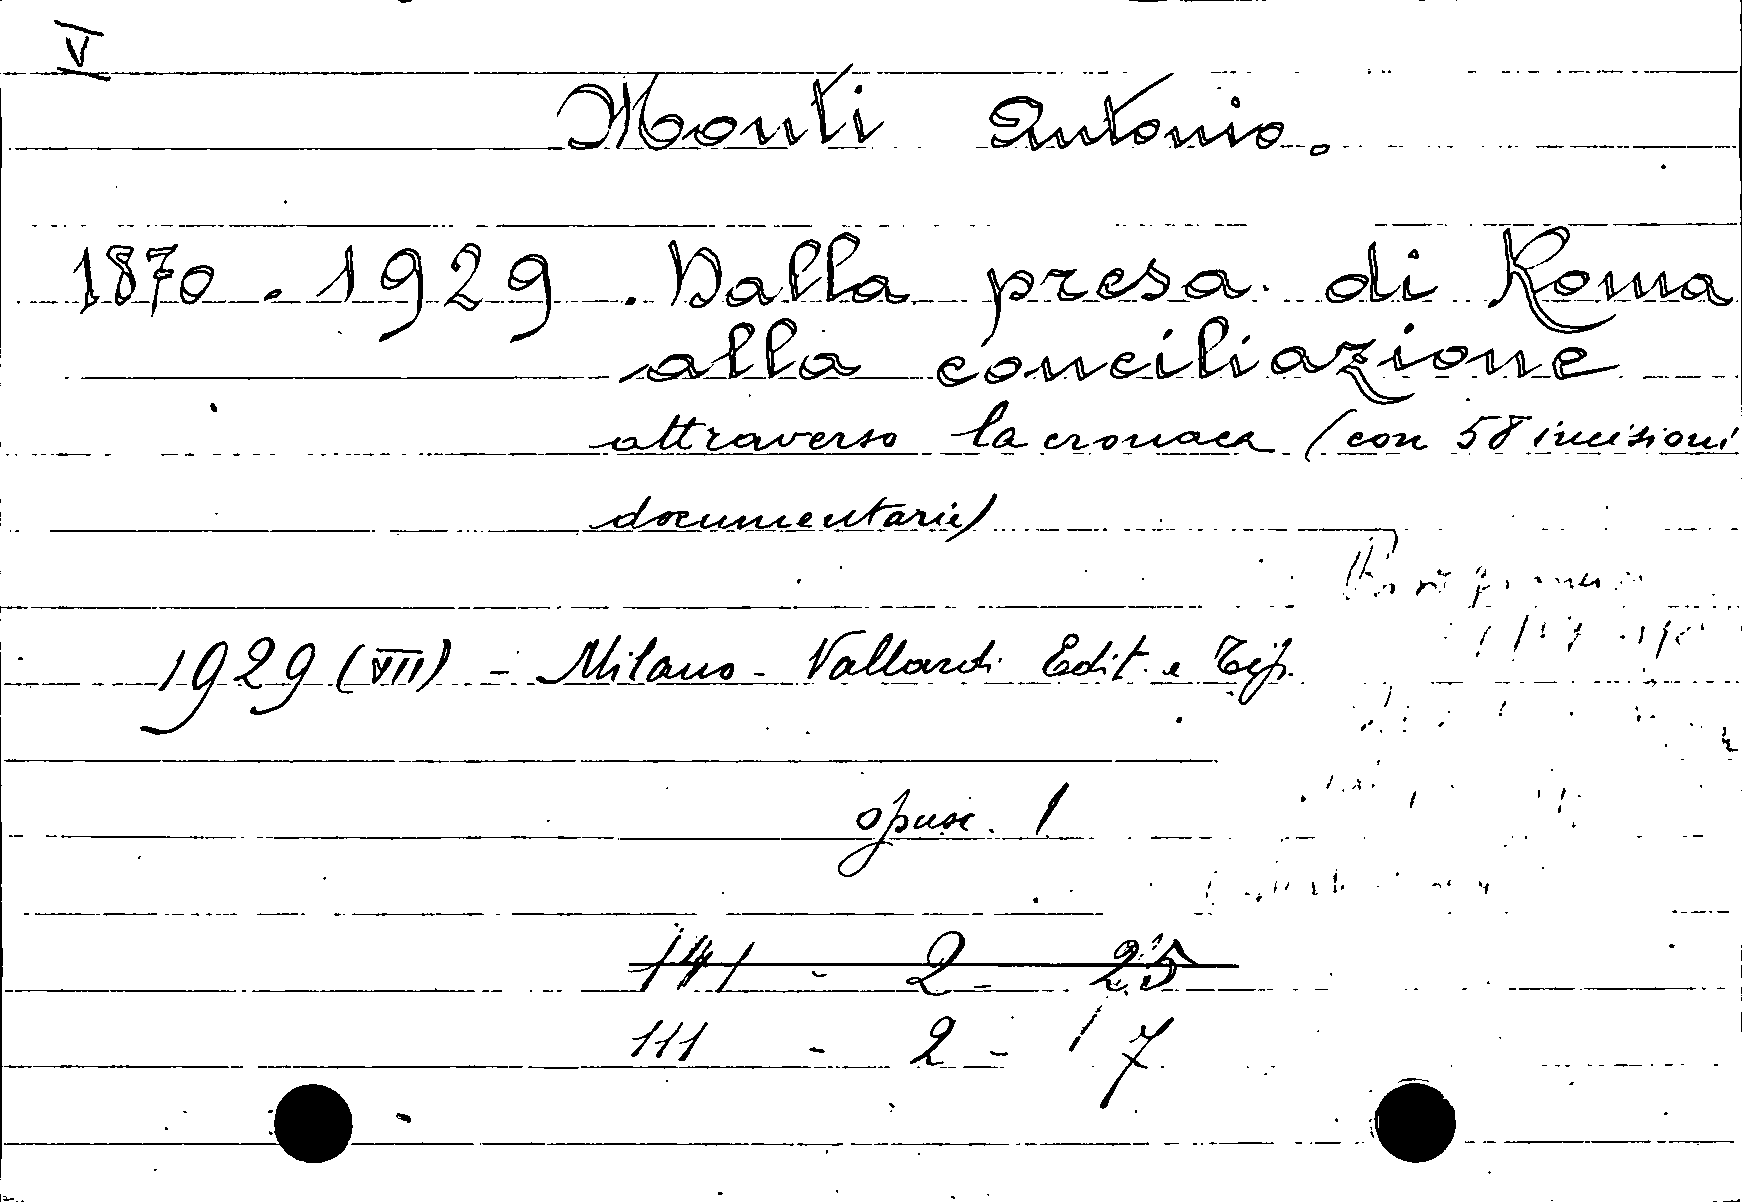 VI
Monti Antonio.
1870 . 1929 . Dalla presa di Roma
alla conciliazione
attraverso la cronaca (con 58 incisioni
documentarie)
1929 (VII) - Milano - Vallardi Edit. e Tip.
opusc. 1
141 - 2 - 25
111 - 2 - 17